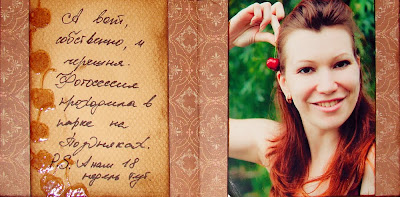 А вот,
собственно, и
черешня.
Фотосессия
проходила в
парке на
Позняках.
P.S. А нам 18
недель тут